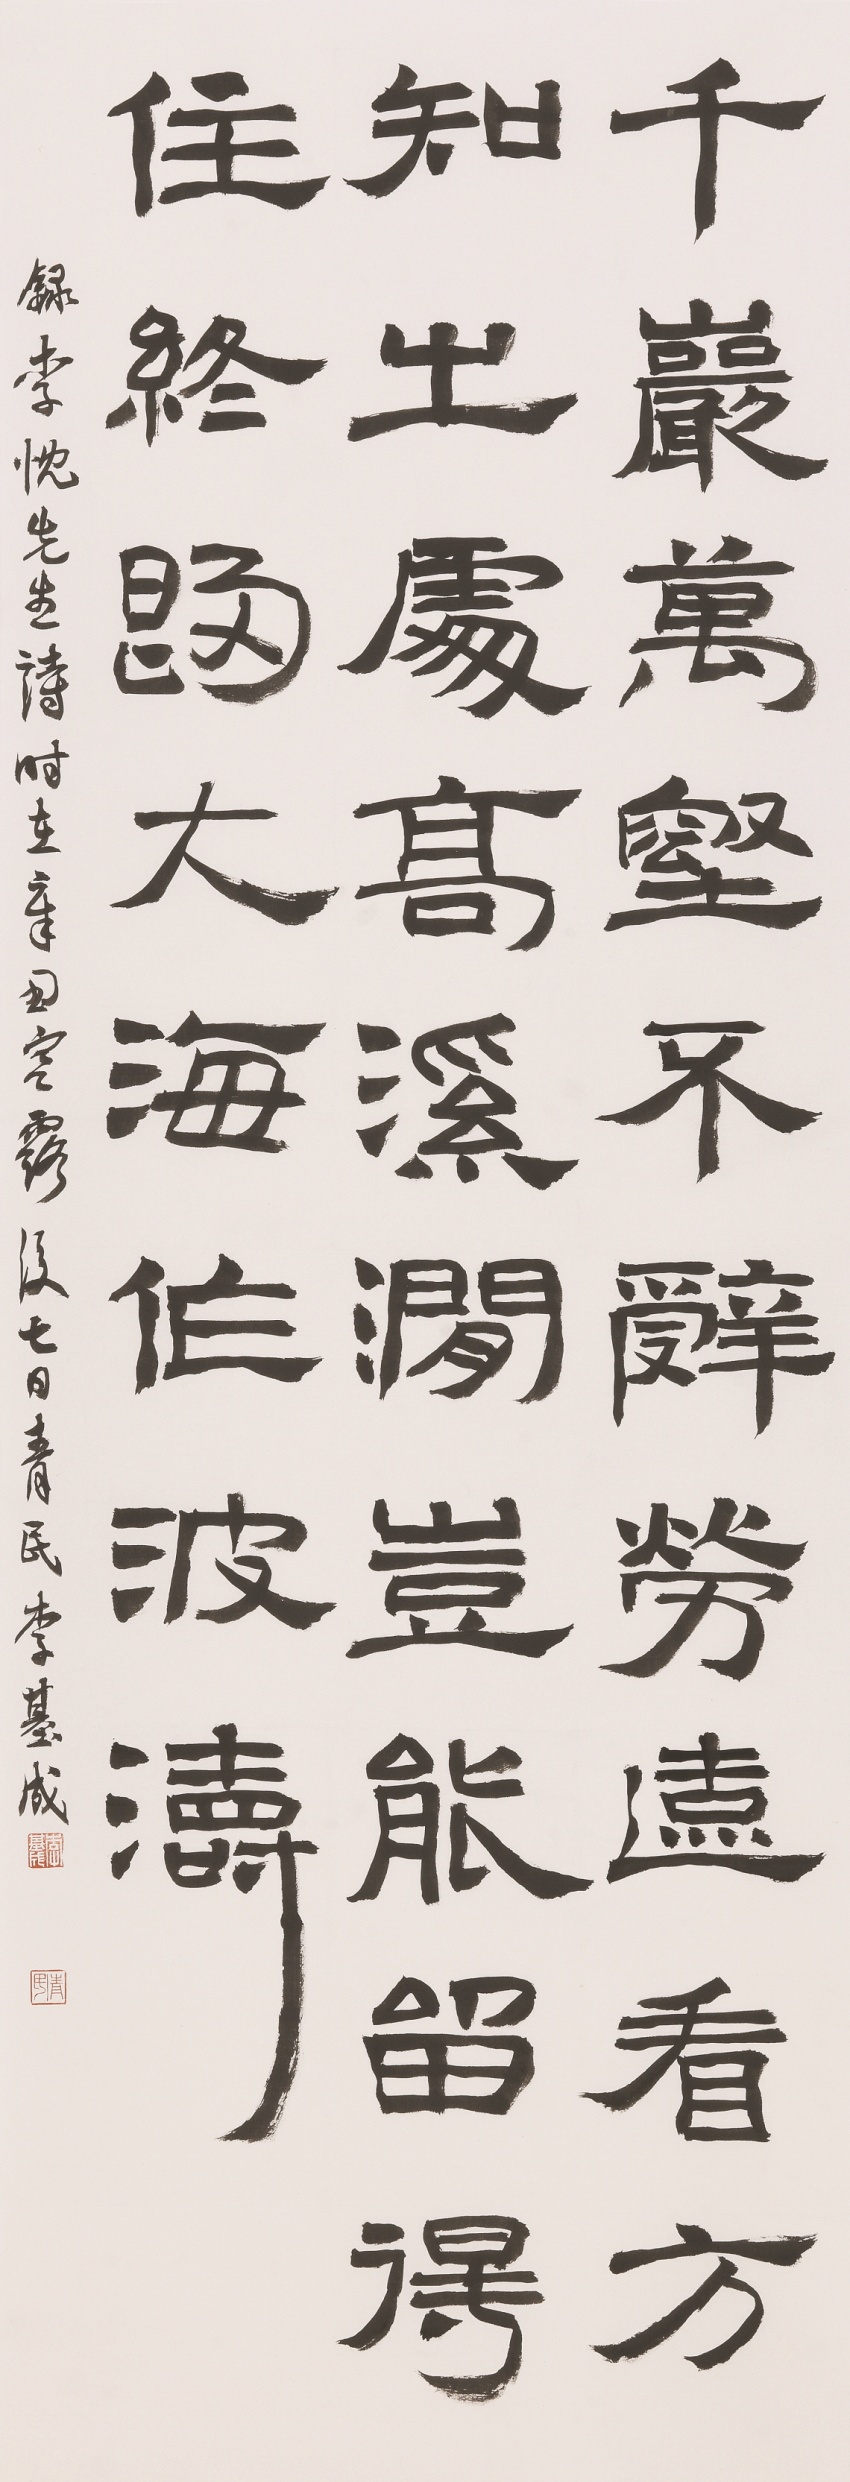 千巖萬壑不辭勞遠看方
知出處高溪澗豈能留得
住終歸大海作波濤
錄李忱先生詩时在辛丑寒露後七日青民李基成